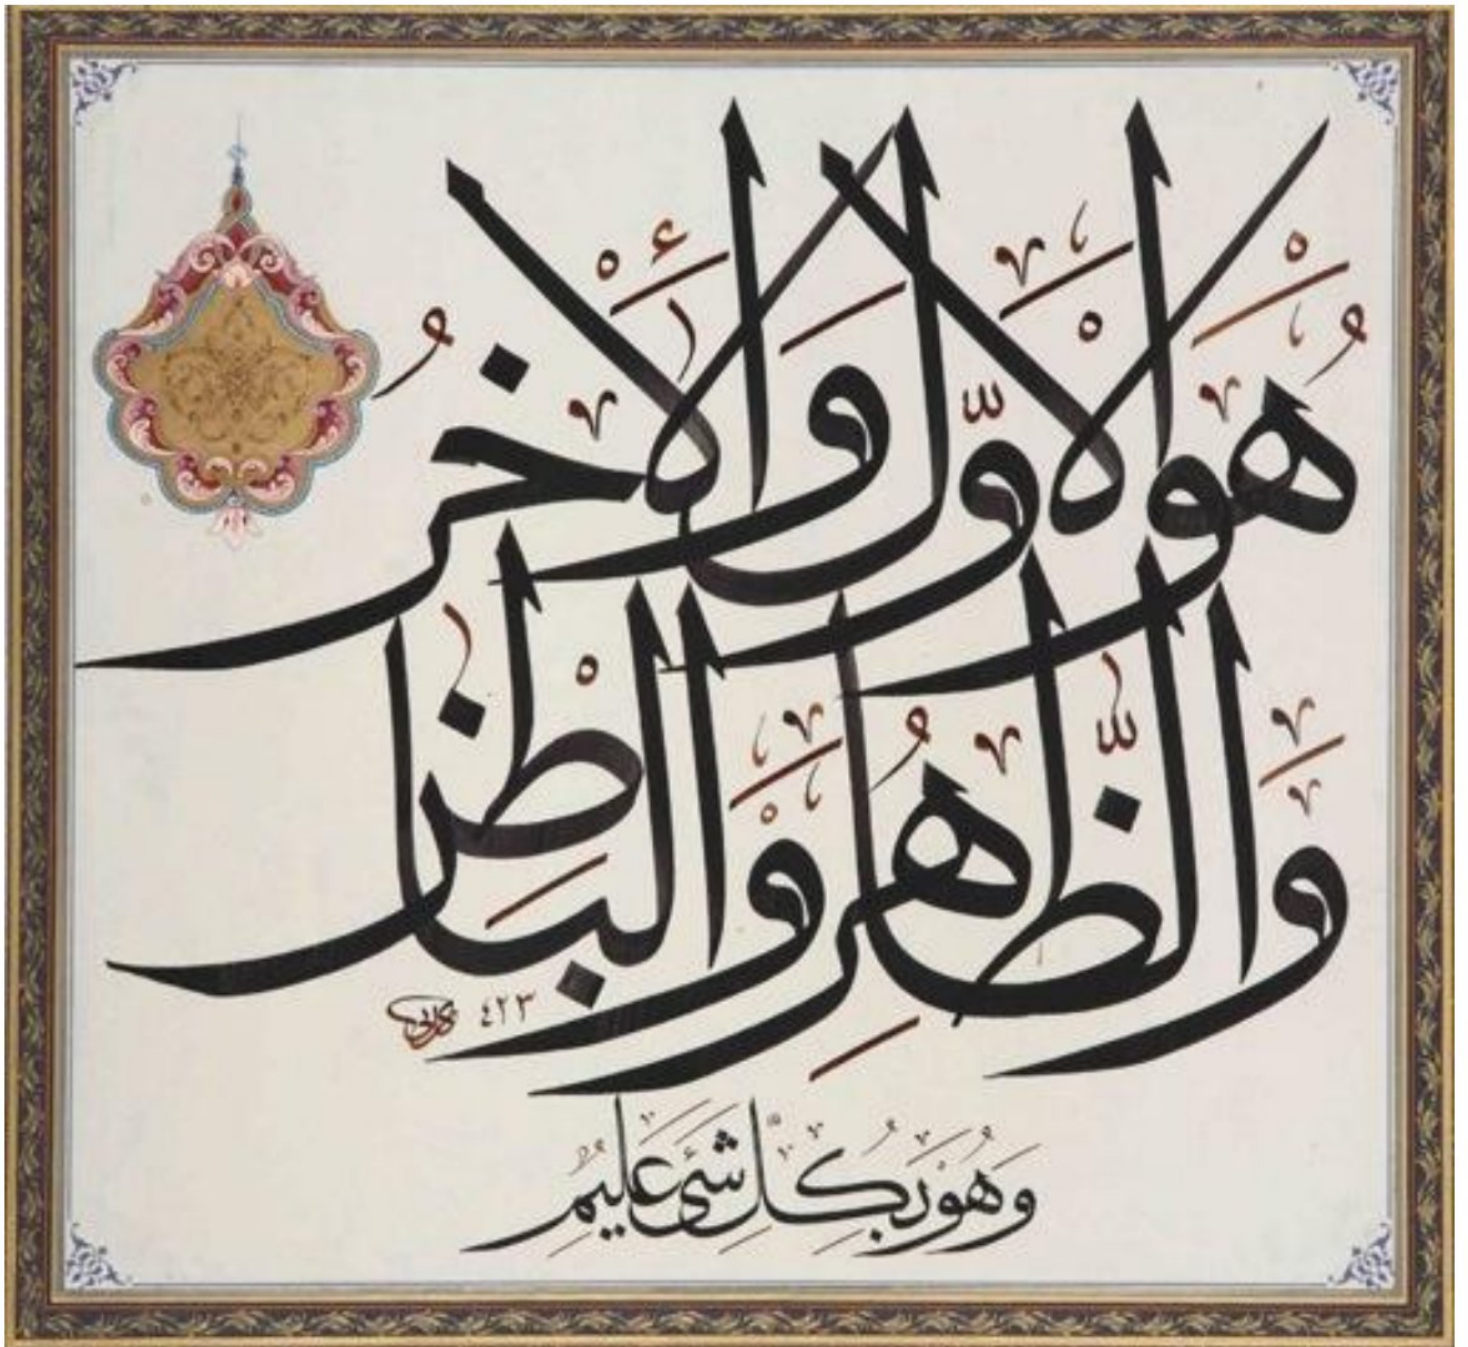 هُوَ الْأَوَّلُ وَالْآخِرُ
وَالظَّاهِرُ وَالْبَاطِنُ
٤٢٣
وَهُوَ بِكُلِّ شَيْءٍ عَلِيمٌ